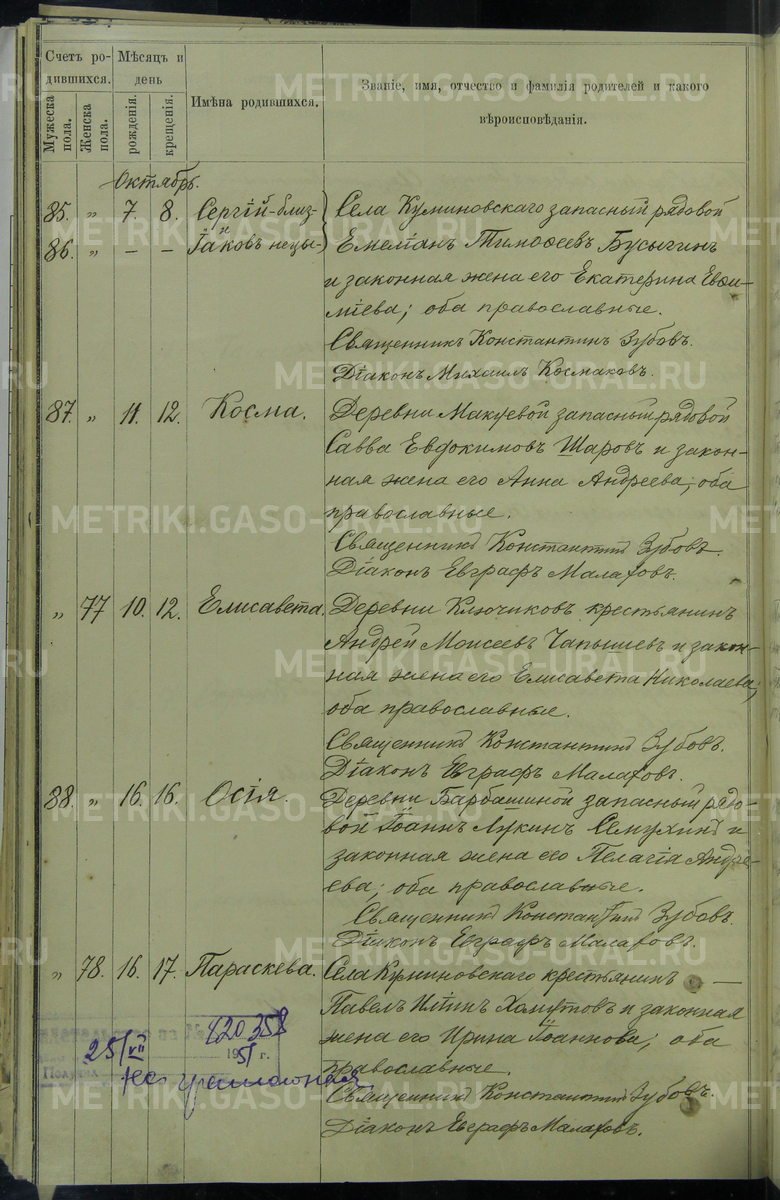 Счетъ ро-
дившихся.
Мѣсяцъ и
день
Имѣна родившихся.
Званіе, имя, отчество и фамилія родителей и какого
вѣроисповѣданія.
Мужеска пола.
Женска пола.
рожденія.
крещенія.
METRIKI.GASO-URAL.RU
Октябрь.
85. „ 7. 8. Сергій-близ- Села Куминовскаго запасный рядовой
86. „ – – Іаковъ нецы- Емеліанъ Тимофеевъ Бусыгинъ
и
и законная жена его Екатерина Евфи-
міева; оба православные.
Священникъ Константинъ Зубовъ.
Діаконъ Михаилъ Космаковъ.
87. „ 11. 12. Косма. Деревни Макуевой запасный рядовой
Савва Евдокимовъ Шаровъ и закон-
ная жена его Анна Андреева; оба
православные.
Священникъ Константинъ Зубовъ.
Діаконъ Евграфъ Малаховъ.
„ 77 10. 12. Елисавета. Деревни Ключиковъ крестьянинъ
Андрей Моисеевъ Чапышевъ и закон-
ная жена его Елисавета Николаева;
оба православные.
Священникъ Константинъ Зубовъ.
Діаконъ Евграфъ Малаховъ.
88. „ 16. 16. Осія. Деревни Барбашиной запасный рядо-
вой Іоаннъ Лукинъ Семухинъ и
законная жена его Пелагія Андре-
ева; оба православные.
Священникъ Константинъ Зубовъ.
Діаконъ Евграфъ Малаховъ.
„ 78. 16. 17. Параскева. Села Куминовскаго крестьянинъ
Павелъ Иліинъ Хомутовъ и законная
жена его Ирина Іоаннова; оба
православные.
Священникъ Константинъ Зубовъ.
Діаконъ Евграфъ Малаховъ.
420358
25/VII 1951 г.